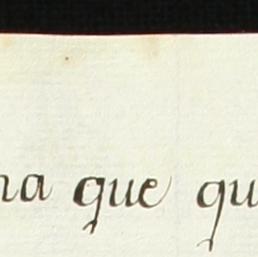 na que qu